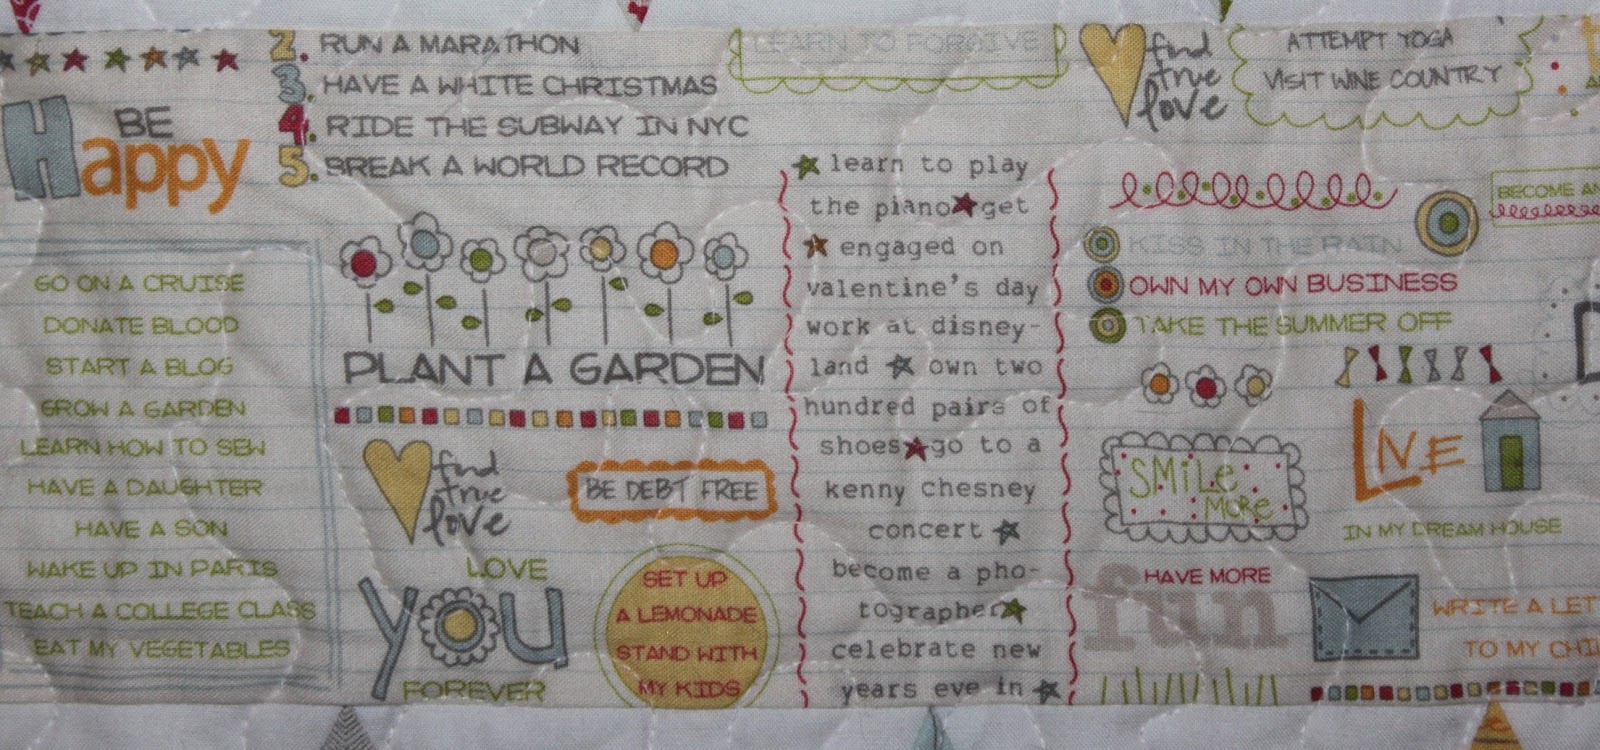 2. RUN A MARATHON
3. HAVE A WHITE CHRISTMAS
4. RIDE THE SUBWAY IN NYC
5. BREAK A WORLD RECORD
BE
Happy
GO ON A CRUISE
DONATE BLOOD
START A BLOG
GROW A GARDEN
LEARN HOW TO SEW
HAVE A DAUGHTER
HAVE A SON
WAKE UP IN PARIS
TEACH A COLLEGE CLASS
EAT MY VEGETABLES
PLANT A GARDEN
find
true
love
BE DEBT FREE
LOVE
you
FOREVER
SET UP
A LEMONADE
STAND WITH
MY KIDS
LEARN TO FORGIVE
learn to play
the piano get
engaged on
valentine's day
work at disney-
land own two
hundred pairs of
shoes go to a
kenny chesney
concert
become a pho-
tographer
celebrate new
years eve in
find
true
love
ATTEMPT YOGA
VISIT WINE COUNTRY
BECOME AN
KISS IN THE RAIN
OWN MY OWN BUSINESS
TAKE THE SUMMER OFF
SMiLe
MoRe
LIVE
IN MY DREAM HOUSE
HAVE MORE
fun
WRITE A LET
TO MY CHI